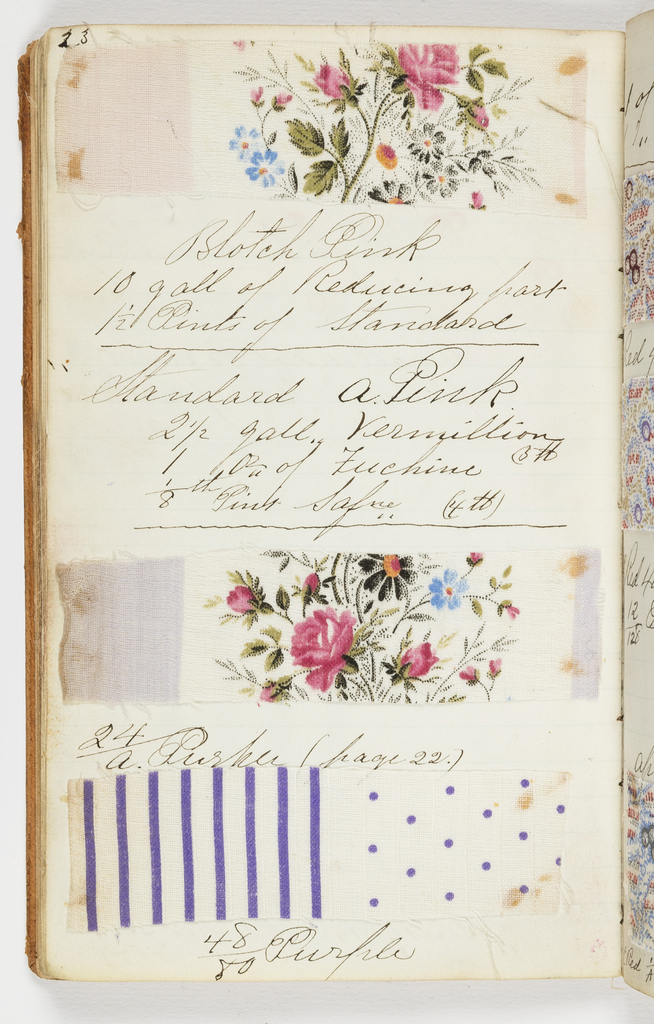 23
Blotch Pink
10 gall of Reducing part
1½ Pints of Standard
Standard a. Pink
2½ gall,, Vermillion
1 Oz,, of Fuchine 3 tt
1/8 th Pint Safne (4 tt)
24/a. Purple (page 22.)
48/80 Purple
1 of